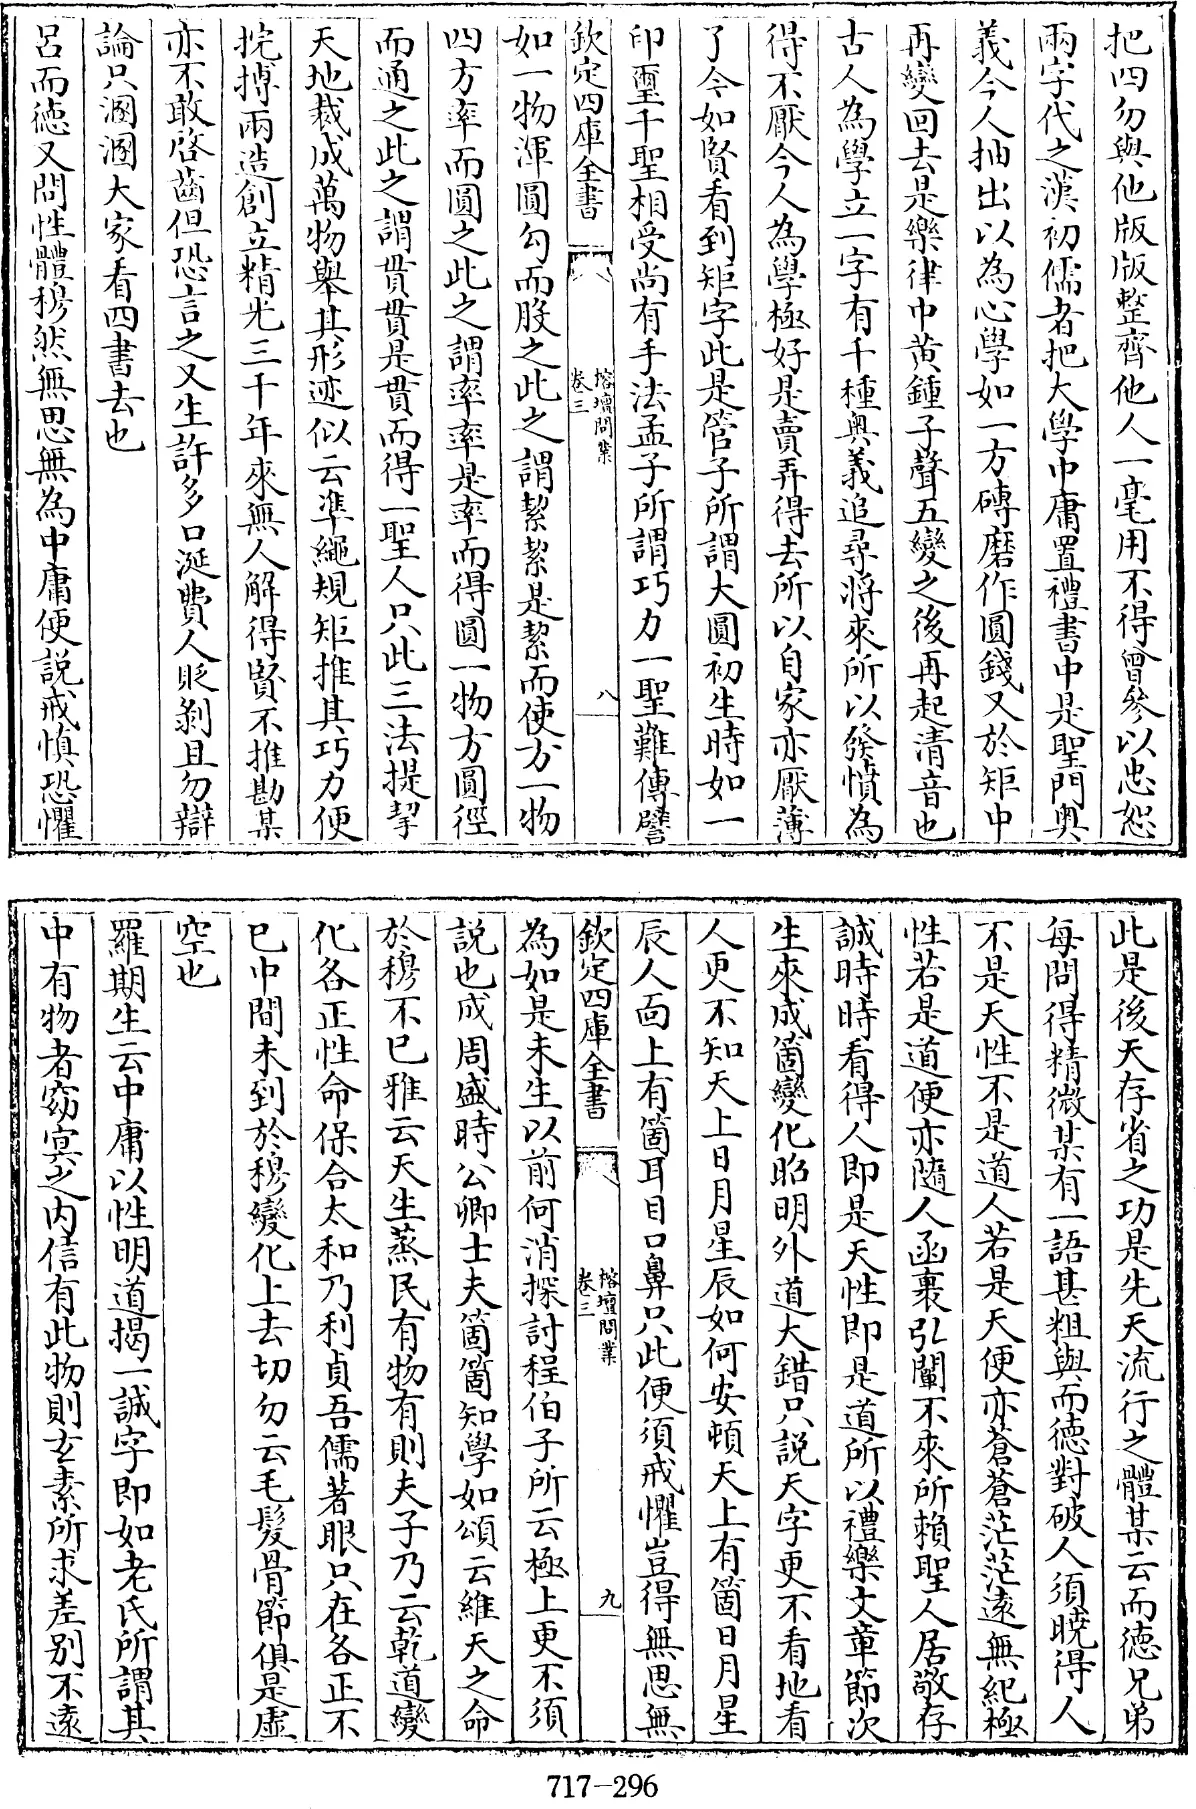 把四勿與他版版整齊他人一毫用不得曾參以忠恕
兩字代之漢初儒者把大學中庸置禮書中是聖門奧
義今人抽出以為心學如一方磚磨作圓錢又於矩中
再變回去是樂律中黃鍾子聲五變之後再起清音也
古人為學立一字有千種奧義追尋將來所以發憤為
得不厭今人為學極好是賣弄得去所以自家亦厭薄
了今如賢看到矩字此是管子所謂大圓初生時如一
印璽千聖相受尚有手法孟子所謂巧力一聖難傳譬
欽定四庫全書
榕壇問業
卷三
八
如一物渾圓勾而股之此之謂絜絜是絜而使方一物
四方率而圓之此之謂率率是率而得圓一物方圓徑
而通之此之謂貫貫是貫而得一聖人只此三法提挈
天地裁成萬物舉其形迹似云準繩規矩推其巧力便
捖摶兩造創立精光三千年來無人解得賢不推勘某
亦不敢啓齒但恐言之又生許多口涎費人貶剝且勿辯
論只溷溷大家看四書去也
呂而德又問性體穆然無思無為中庸便說戒慎恐懼
此是後天存省之功是先天流行之體某云而德兄弟
每問得精微某有一語甚粗與而德對破人須曉得人
不是天性不是道人若是天便亦蒼蒼茫茫遠無紀極
性若是道便亦隨人函裹引闡不來所賴聖人居敬存
誠時時看得人即是天性即是道所以禮樂文章節次
生來成箇變化昭明外道大錯只說天字更不看地看
人更不知天上日月星辰如何安頓天上有箇日月星
辰人面上有箇耳目口鼻只此便須戒懼豈得無思無
欽定四庫全書
榕壇問業
卷三
九
為如是未生以前何消探討程伯子所云極上更不須
說也成周盛時公卿士夫箇箇知學如頌云維天之命
於穆不已雅云天生蒸民有物有則夫子乃云乾道變
化各正性命保合太和乃利貞吾儒著眼只在各正不
已中間未到於穆變化上去切勿云毛髮骨節俱是虛
空也
羅期生云中庸以性明道揭一誠字即如老氏所謂其
中有物者窈冥之内信有此物則玄素所求差別不遠
717-296